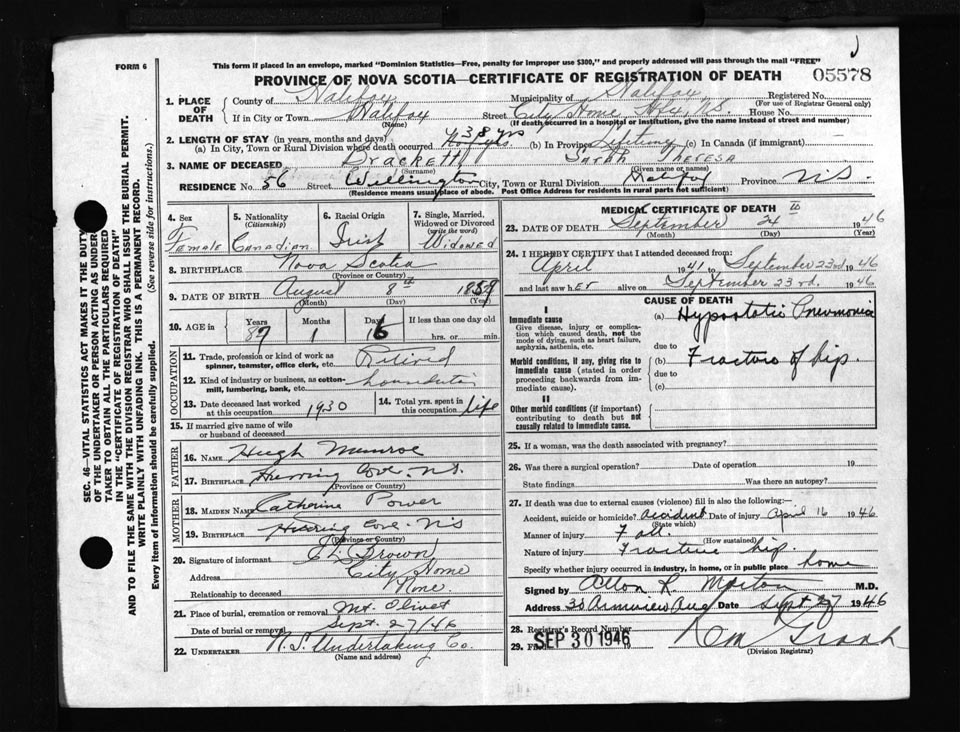 FORM 6
This form if placed in an envelope, marked "Dominion Statistics—Free, penalty for improper use $300," and properly addressed will pass through the mail "FREE"
PROVINCE OF NOVA SCOTIA—CERTIFICATE OF REGISTRATION OF DEATH
05578
1. PLACE OF DEATH
County of Halifax Municipality of Halifax Registered No.
(For use of Registrar General only)
If in City or Town Halifax Street City Home Hfx, N.S. House No.
(If death occurred in a hospital or institution, give the name instead of street and number)
2. LENGTH OF STAY (in years, months and days)
(a) In City, Town or Rural Division where death occurred 38 yrs (b) In Province Lifetime (c) In Canada (if immigrant)
3. NAME OF DECEASED Brackett Sarah Theresa
(Surname) (Given name or names)
RESIDENCE No. 56 Street Wellington City, Town or Rural Division Halifax Province N.S.
(Residence means usual place of abode. Post Office Address for residents in rural parts not sufficient)
4. Sex Female
5. Nationality (Citizenship) Canadian
6. Racial Origin Irish
7. Single, Married, Widowed or Divorced (write the word) Widowed
8. BIRTHPLACE Nova Scotia
(Province or Country)
9. DATE OF BIRTH August 8th 1859
(Month) (Day) (Year)
10. AGE in Years Months Days If less than one day old
87 1 16 hrs. or min.
OCCUPATION
11. Trade, profession or kind of work as spinner, teamster, office clerk, etc. Retired
12. Kind of industry or business, as cotton-mill, lumbering, bank, etc.
13. Date deceased last worked at this occupation 1930
14. Total yrs. spent in this occupation Life
15. If married give name of wife or husband of deceased
FATHER
16. NAME Hugh Munroe
17. BIRTHPLACE Herring Cove N.S.
(Province or Country)
MOTHER
18. MAIDEN NAME Catherine Power
19. BIRTHPLACE Herring Cove N.S.
(Province or Country)
20. Signature of informant Brown
Address City Home
Relationship to deceased None.
21. Place of burial, cremation or removal Mt. Olivet
Date of burial or removal Sept. 27/46
22. UNDERTAKER N.S. Undertaking Co.
(Name and address)
MEDICAL CERTIFICATE OF DEATH
23. DATE OF DEATH September 24th 1946
(Month) (Day) (Year)
24. I HEREBY CERTIFY that I attended deceased from:
April 1941 to September 23rd 1946
and last saw her alive on September 23rd. 1946
CAUSE OF DEATH
Immediate cause
Give disease, injury or complication which caused death, not the mode of dying, such as heart failure, asphyxia, asthenia, etc.
(a) Hypostatic Pneumonia
due to
Morbid conditions, if any, giving rise to immediate cause (stated in order proceeding backwards from immediate cause).
(b) Fracture of hip.
due to
(c)
II
Other morbid conditions (if important) contributing to death but not causally related to immediate cause.
25. If a woman, was the death associated with pregnancy?
26. Was there a surgical operation? Date of operation 19
State findings Was there an autopsy?
27. If death was due to external causes (violence) fill in also the following:—
Accident, suicide or homicide? Accident Date of injury April 16 1946
(State which)
Manner of injury Fall
(How sustained)
Nature of injury Fracture hip.
Specify whether injury occurred in industry, in home, or in public place home
Signed by Allan R Morton M.D.
Address 30 Armview Ave Date Sept 27 1946
28. Registrar's Record Number
29. Filed SEP 30 1946
(Division Registrar)
SEC. 46—VITAL STATISTICS ACT MAKES IT THE DUTY
OF THE UNDERTAKER OR PERSON ACTING AS UNDER-
TAKER TO OBTAIN ALL THE PARTICULARS REQUIRED
IN THE "CERTIFICATE OF REGISTRATION OF DEATH"
AND TO FILE THE SAME WITH THE DIVISION REGISTRAR WHO SHALL ISSUE THE BURIAL PERMIT.
WRITE PLAINLY WITH UNFADING INK. THIS IS A PERMANENT RECORD.
Every item of information should be carefully supplied. (See reverse side for instructions.)